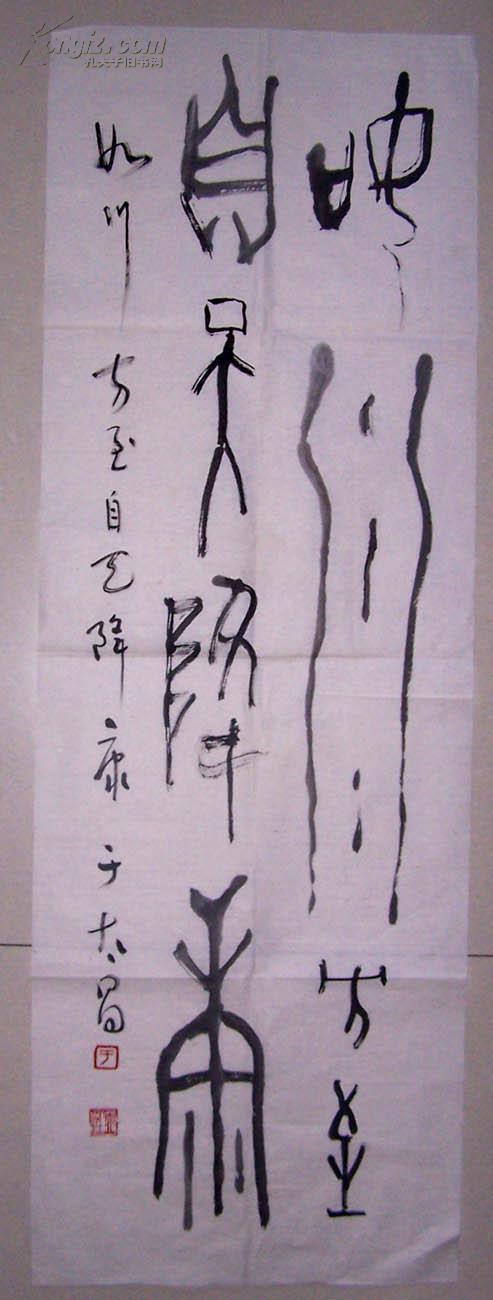 如川方至
自天降康
如川方至自天降康 于太昌
于
Kongfz.com
孔夫子旧书网